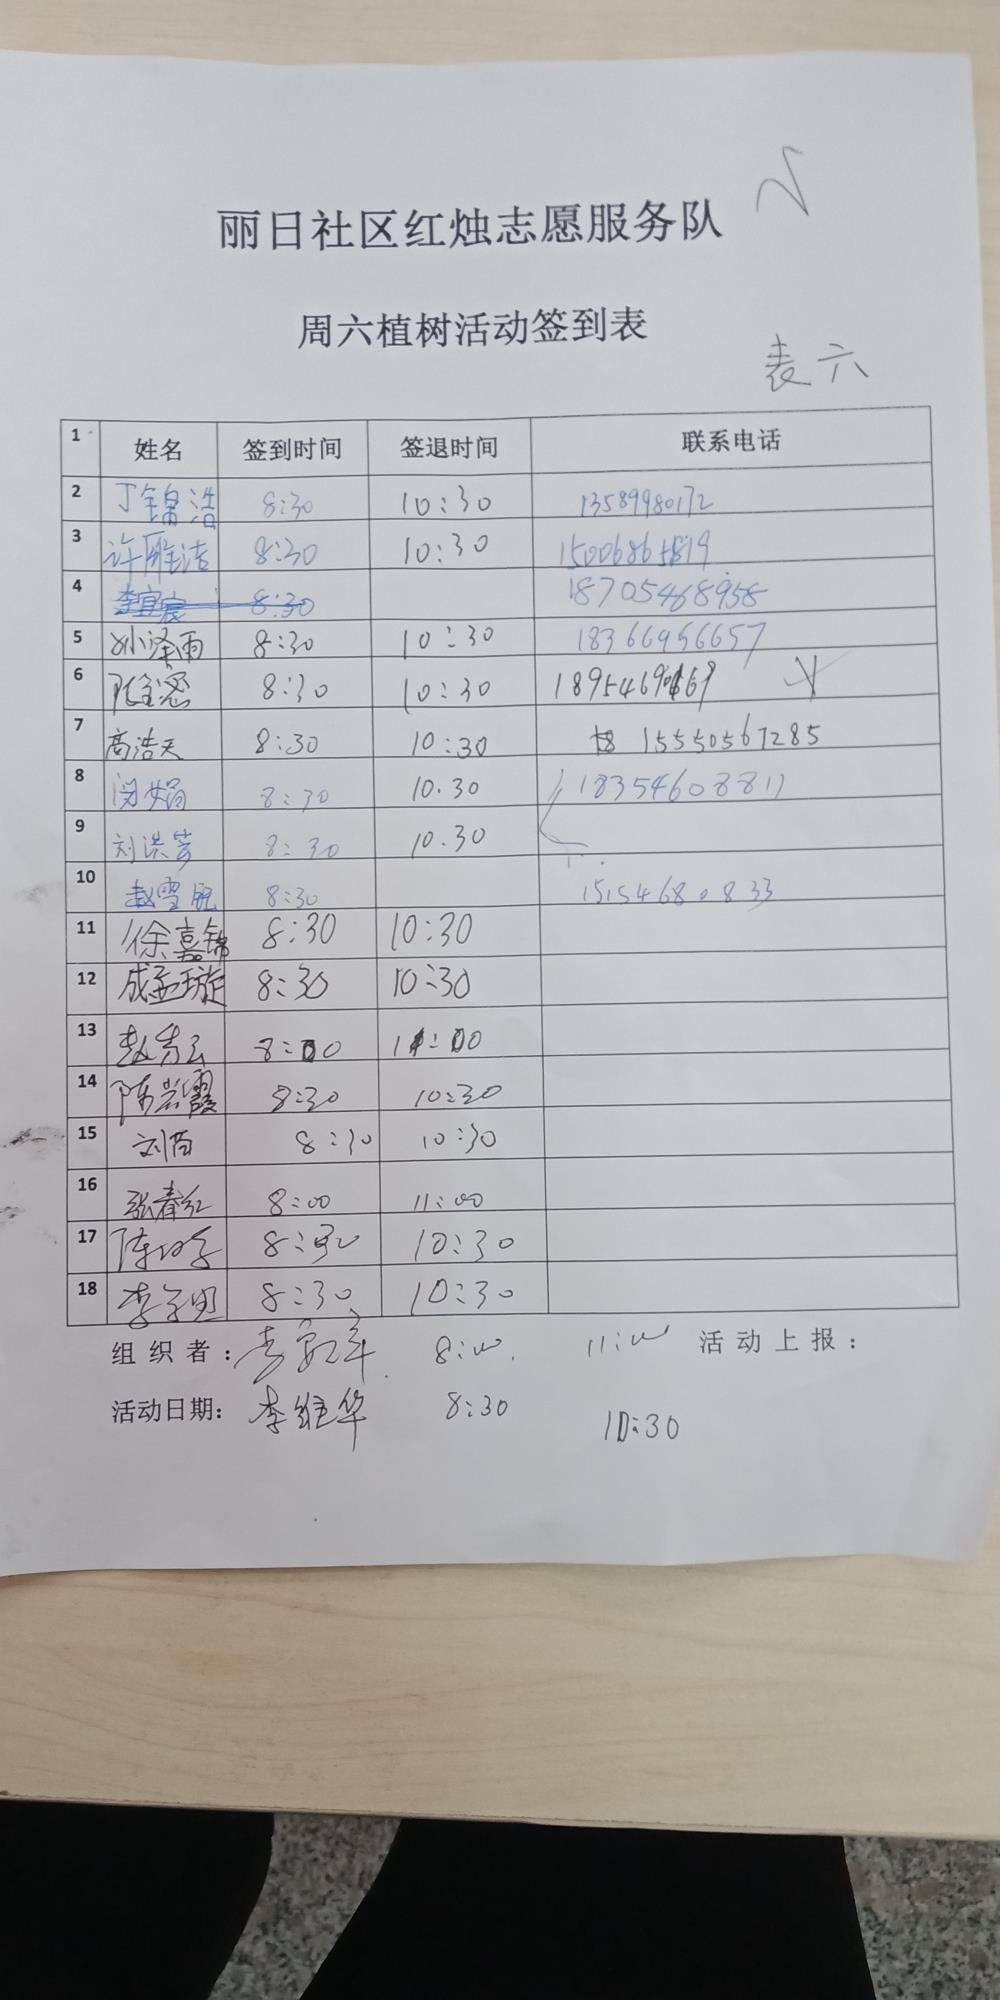 丽日社区红烛志愿服务队
周六植树活动签到表
表六
1 姓名 签到时间 签退时间 联系电话
2 丁锦浩 8:30 10:30 13589980172
3 许雁洁 8:30 10:30 15006865819
4 李宜宸 8:30 18705468958
5 孙泽雨 8:30 10:30 18366956657
6 8:30 10:30
7 高浩天 8:30 10:30 15550567285
8 闵娟 8:30 10.30 18354608811
9 刘洪芳 8:30 10.30
10 赵雪 8:30 15154680833
11 徐嘉锦 8:30 10:30
12 成孟璇 8:30 10:30
13 赵秀云 8:00 11:00
14 陈岩霞 8:30 10:30
15 刘 8:30 10:30
16 张春红 8:00 11:00
17 陈 8:30 10:30
18 李 8:30 10:30
组织者: 李 8:00 11:00 活动上报:
活动日期: 李维华 8:30 10:30